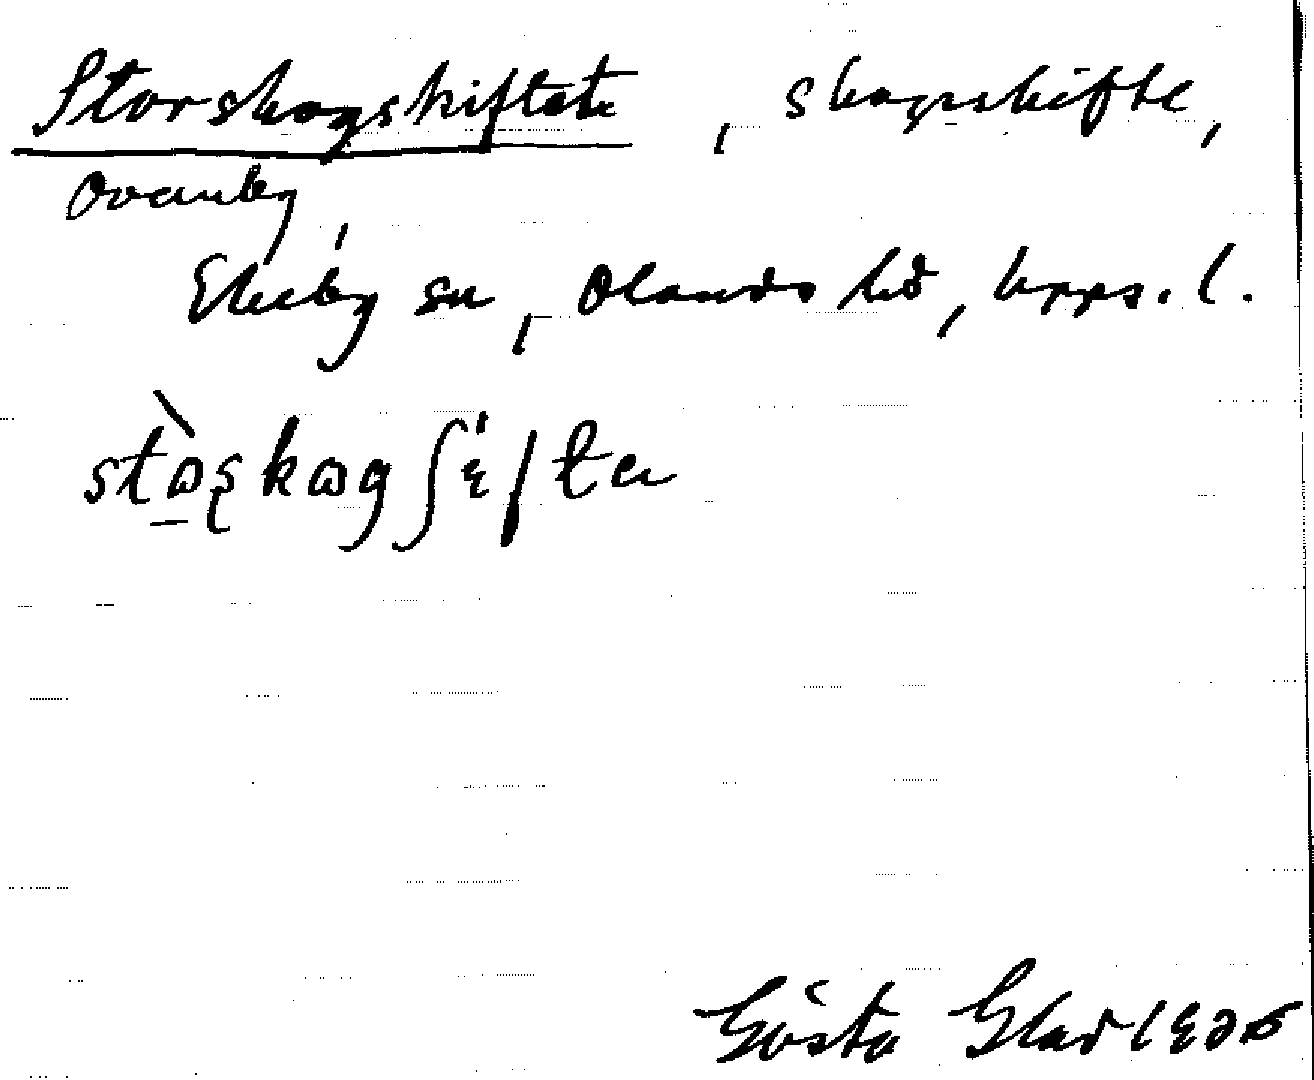 Storskogskiftet , skogsskifte,
Ovanby,
Ekeby sn, Olands hd, Upps. l.
Gösta Glad 1936